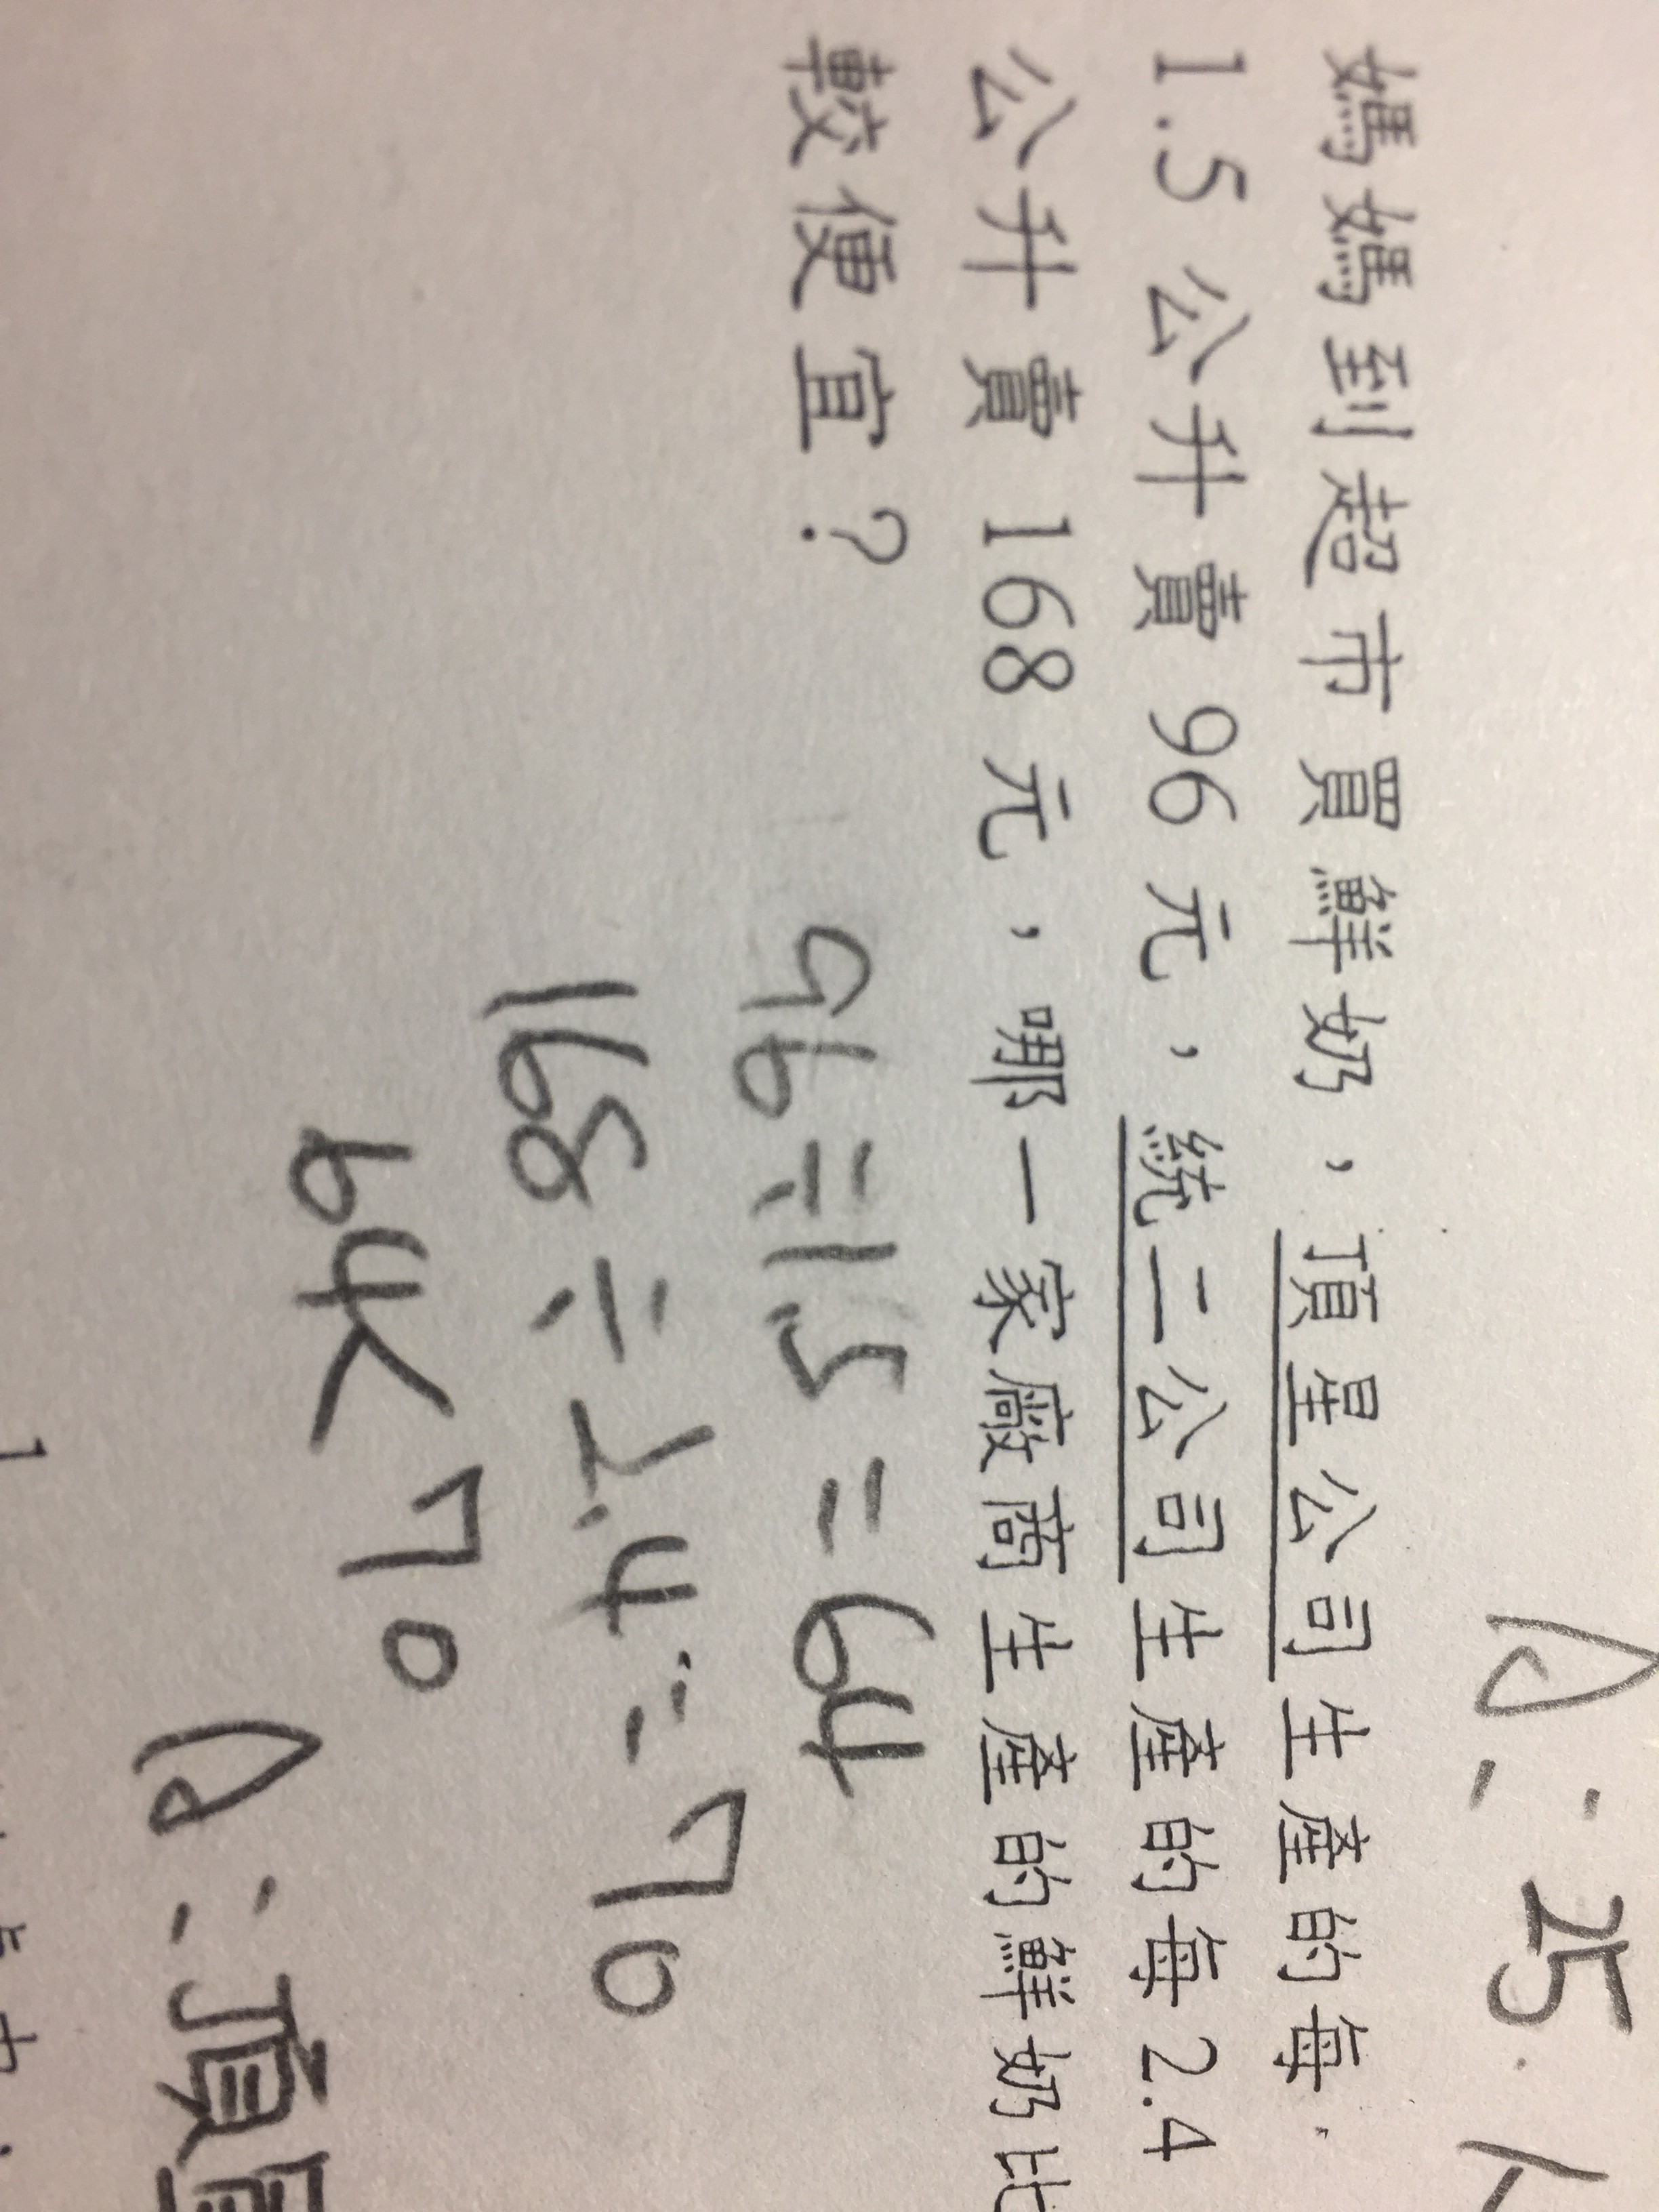 A:25.
媽媽到超市買鮮奶，頂星公司生產的每
1.5公升賣96元，統二公司生產的每2.4
公升賣168元，哪一家廠商生產的鮮奶比
較便宜？
96÷1.5=64
168÷2.4=70
64<70
A:頂星